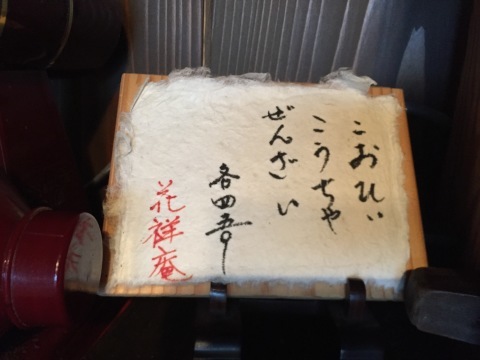 こおひい
こうちゃ
ぜんざい
各四五〇
花祥庵